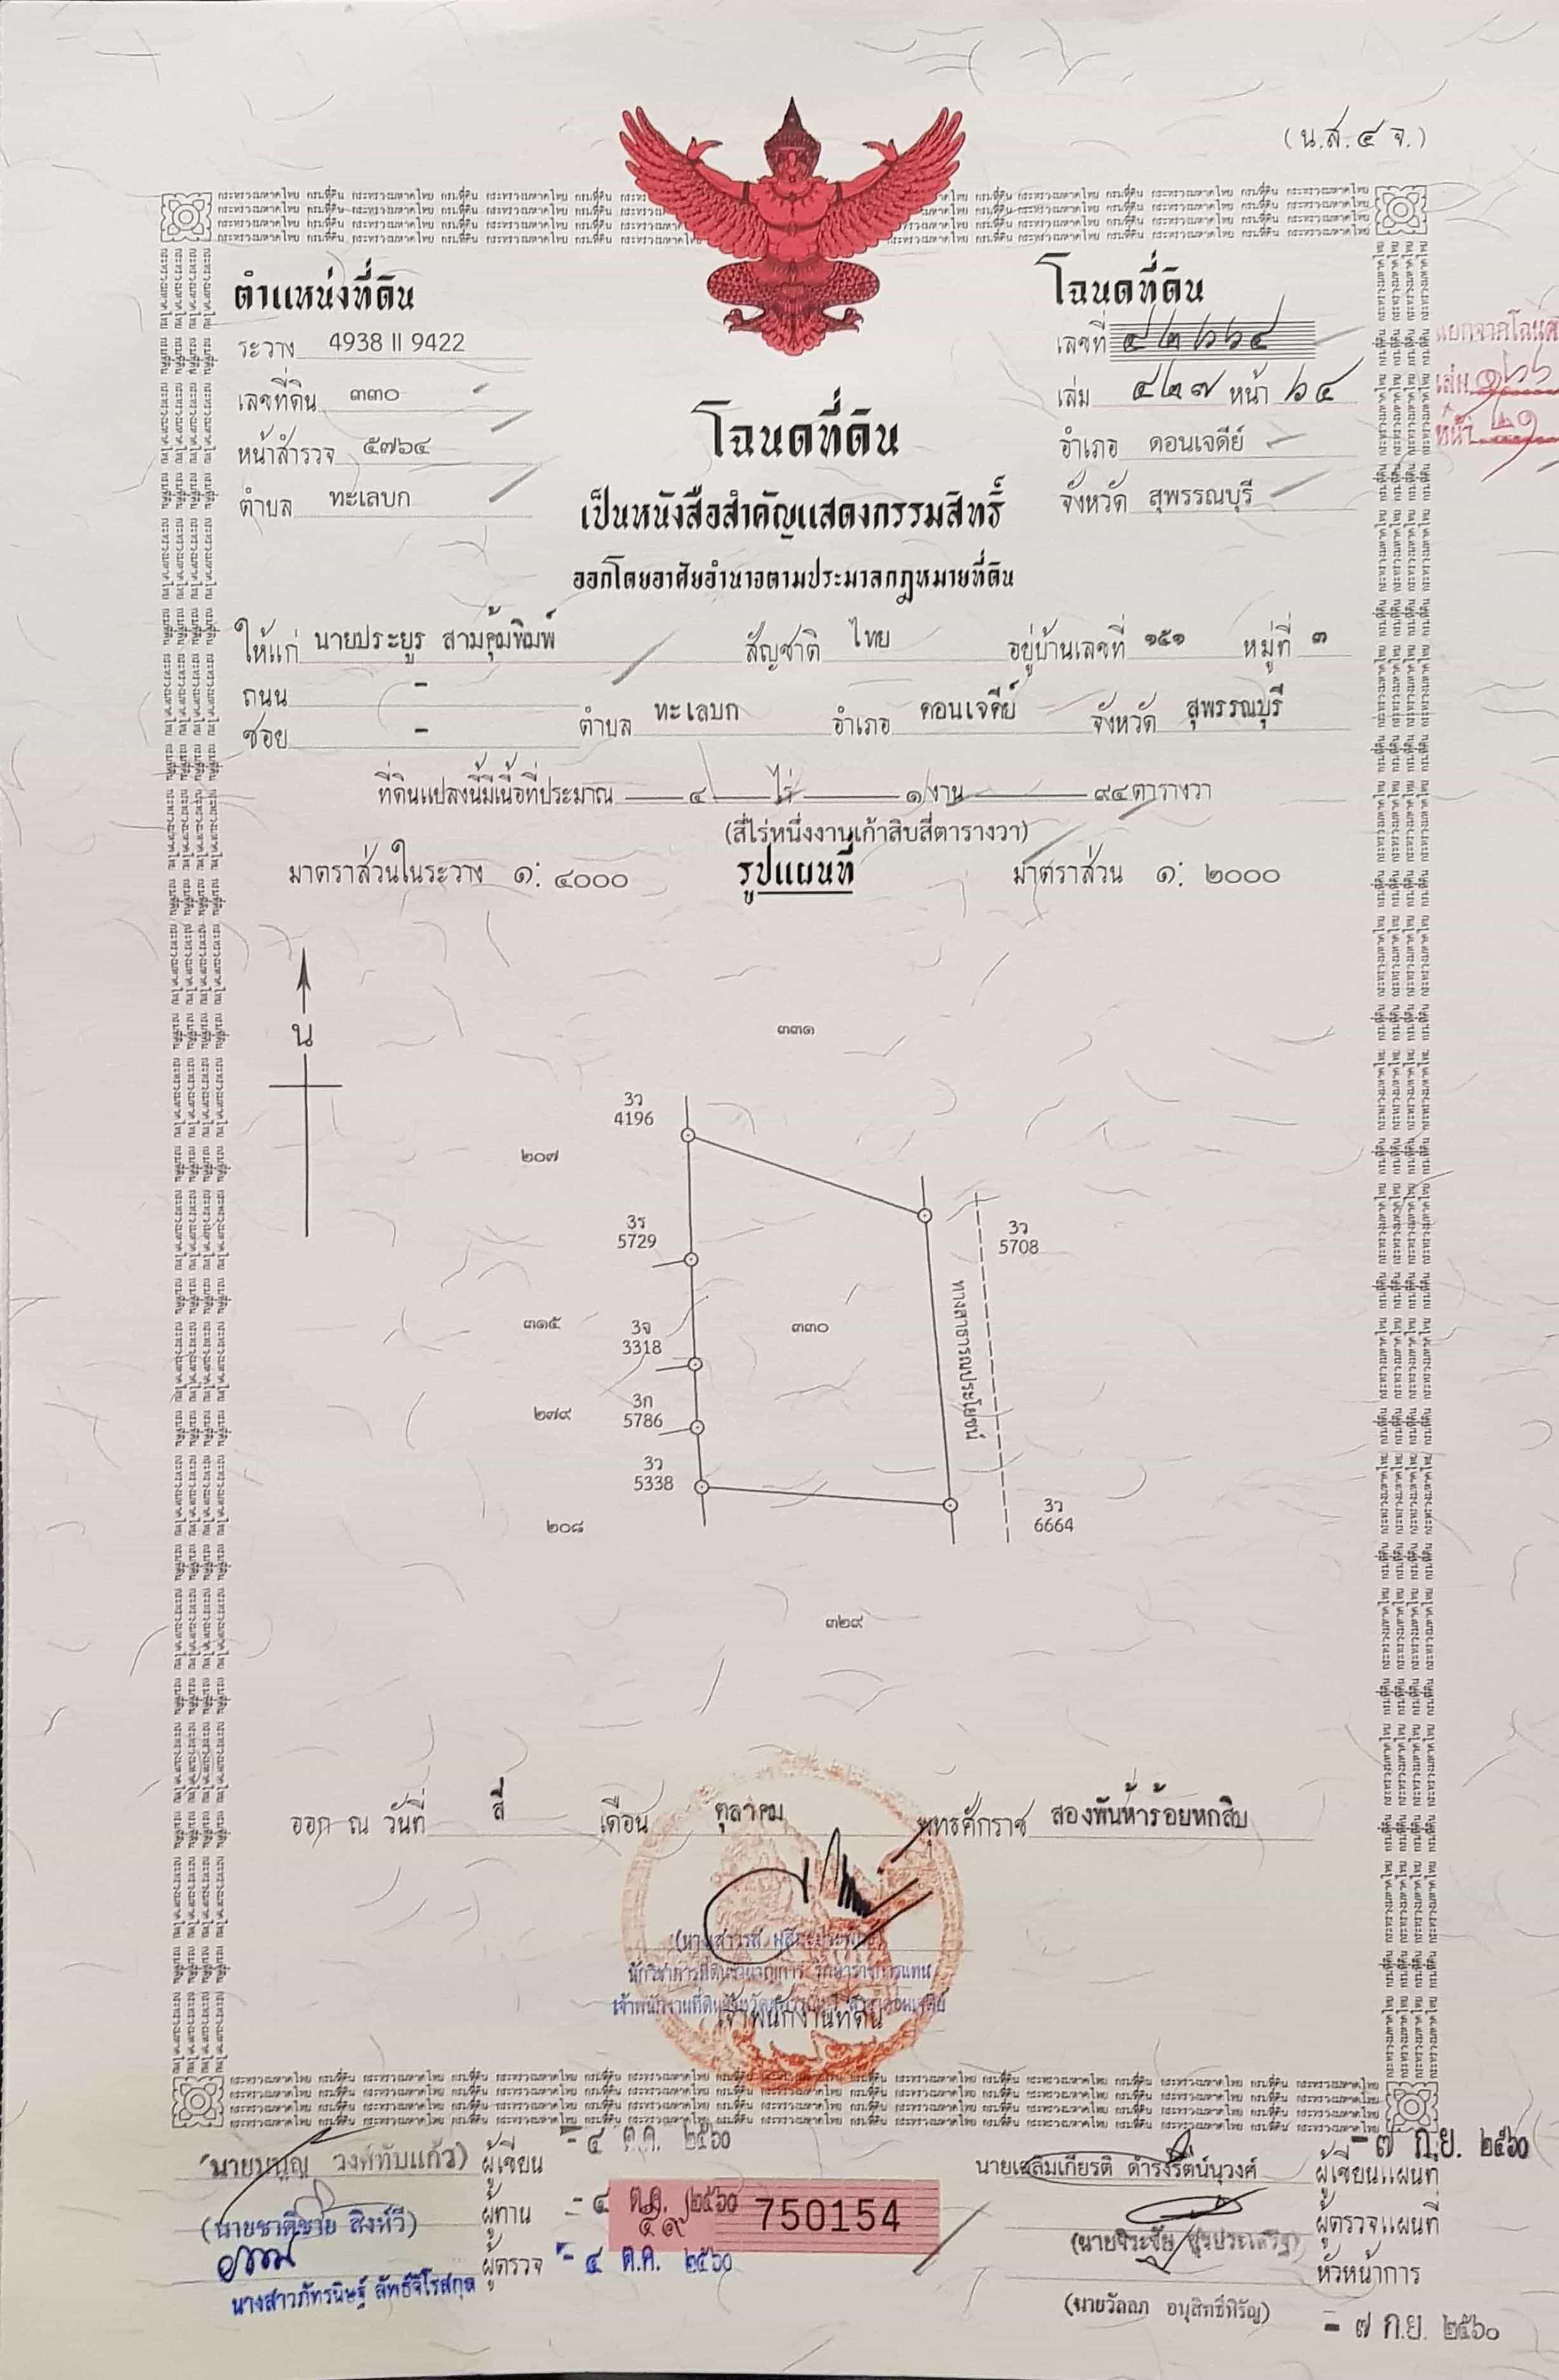 (น.ส.๔ จ.)
ตำแหน่งที่ดิน
ระวาง 4938 II 9422
เลขที่ดิน ๓๓๐
หน้าสำรวจ ๕๗๖๔
ตำบล ทะเลบก
โฉนดที่ดิน
เลขที่ ๔๒๖๖๔
เล่ม ๔๒๗ หน้า ๖๔
อำเภอ ดอนเจดีย์
จังหวัด สุพรรณบุรี
แยกจากโฉนด
เล่ม ๑๖๖
หน้า ๒๑
โฉนดที่ดิน
เป็นหนังสือสำคัญแสดงกรรมสิทธิ์
ออกโดยอาศัยอำนาจตามประมวลกฎหมายที่ดิน
ให้แก่ นายประยูร สามคุ้มพิมพ์ สัญชาติ ไทย อยู่บ้านเลขที่ ๑๕๑ หมู่ที่ ๓
ถนน -
ซอย - ตำบล ทะเลบก อำเภอ ดอนเจดีย์ จังหวัด สุพรรณบุรี
ที่ดินแปลงนี้มีเนื้อที่ประมาณ ๔ ไร่ ๑ งาน ๙๔ ตารางวา
(สี่ไร่หนึ่งงานเก้าสิบสี่ตารางวา)
มาตราส่วนในระวาง ๑: ๔๐๐๐ รูปแผนที่ มาตราส่วน ๑: ๒๐๐๐
น
๓๓๑
3ว
4196
๒๐๗
3ร
5729
3ว
5708
๓๑๕
3จ
3318
๓๓๐
ทางสาธารณประโยชน์
๒๗๙
3ก
5786
3ว
5338
๒๐๘
3ว
6664
๓๒๙
ออก ณ วันที่ สี่ เดือน ตุลาคม พุทธศักราช สองพันห้าร้อยหกสิบ
นักวิชาการที่ดินชำนาญการ รักษาราชการแทน
เจ้าพนักงานที่ดิน
ผู้เขียน - ๔ ต.ค. ๒๕๖๐
(นายชาติชาย สิงห์วี) ผู้ทาน - ๔ ต.ค. ๒๕๖๐
ผู้ตรวจ - ๔ ต.ค. ๒๕๖๐
๕๙ 750154
นายเฉลิมเกียรติ ดำรงรัตน์นุวงศ์ ผู้เขียนแผนที่ - ๗ ก.ย. ๒๕๖๐
ผู้ตรวจแผนที่
หัวหน้าการ
(นายวัลลภ อนุสิทธิ์หิรัญ) - ๗ ก.ย. ๒๕๖๐